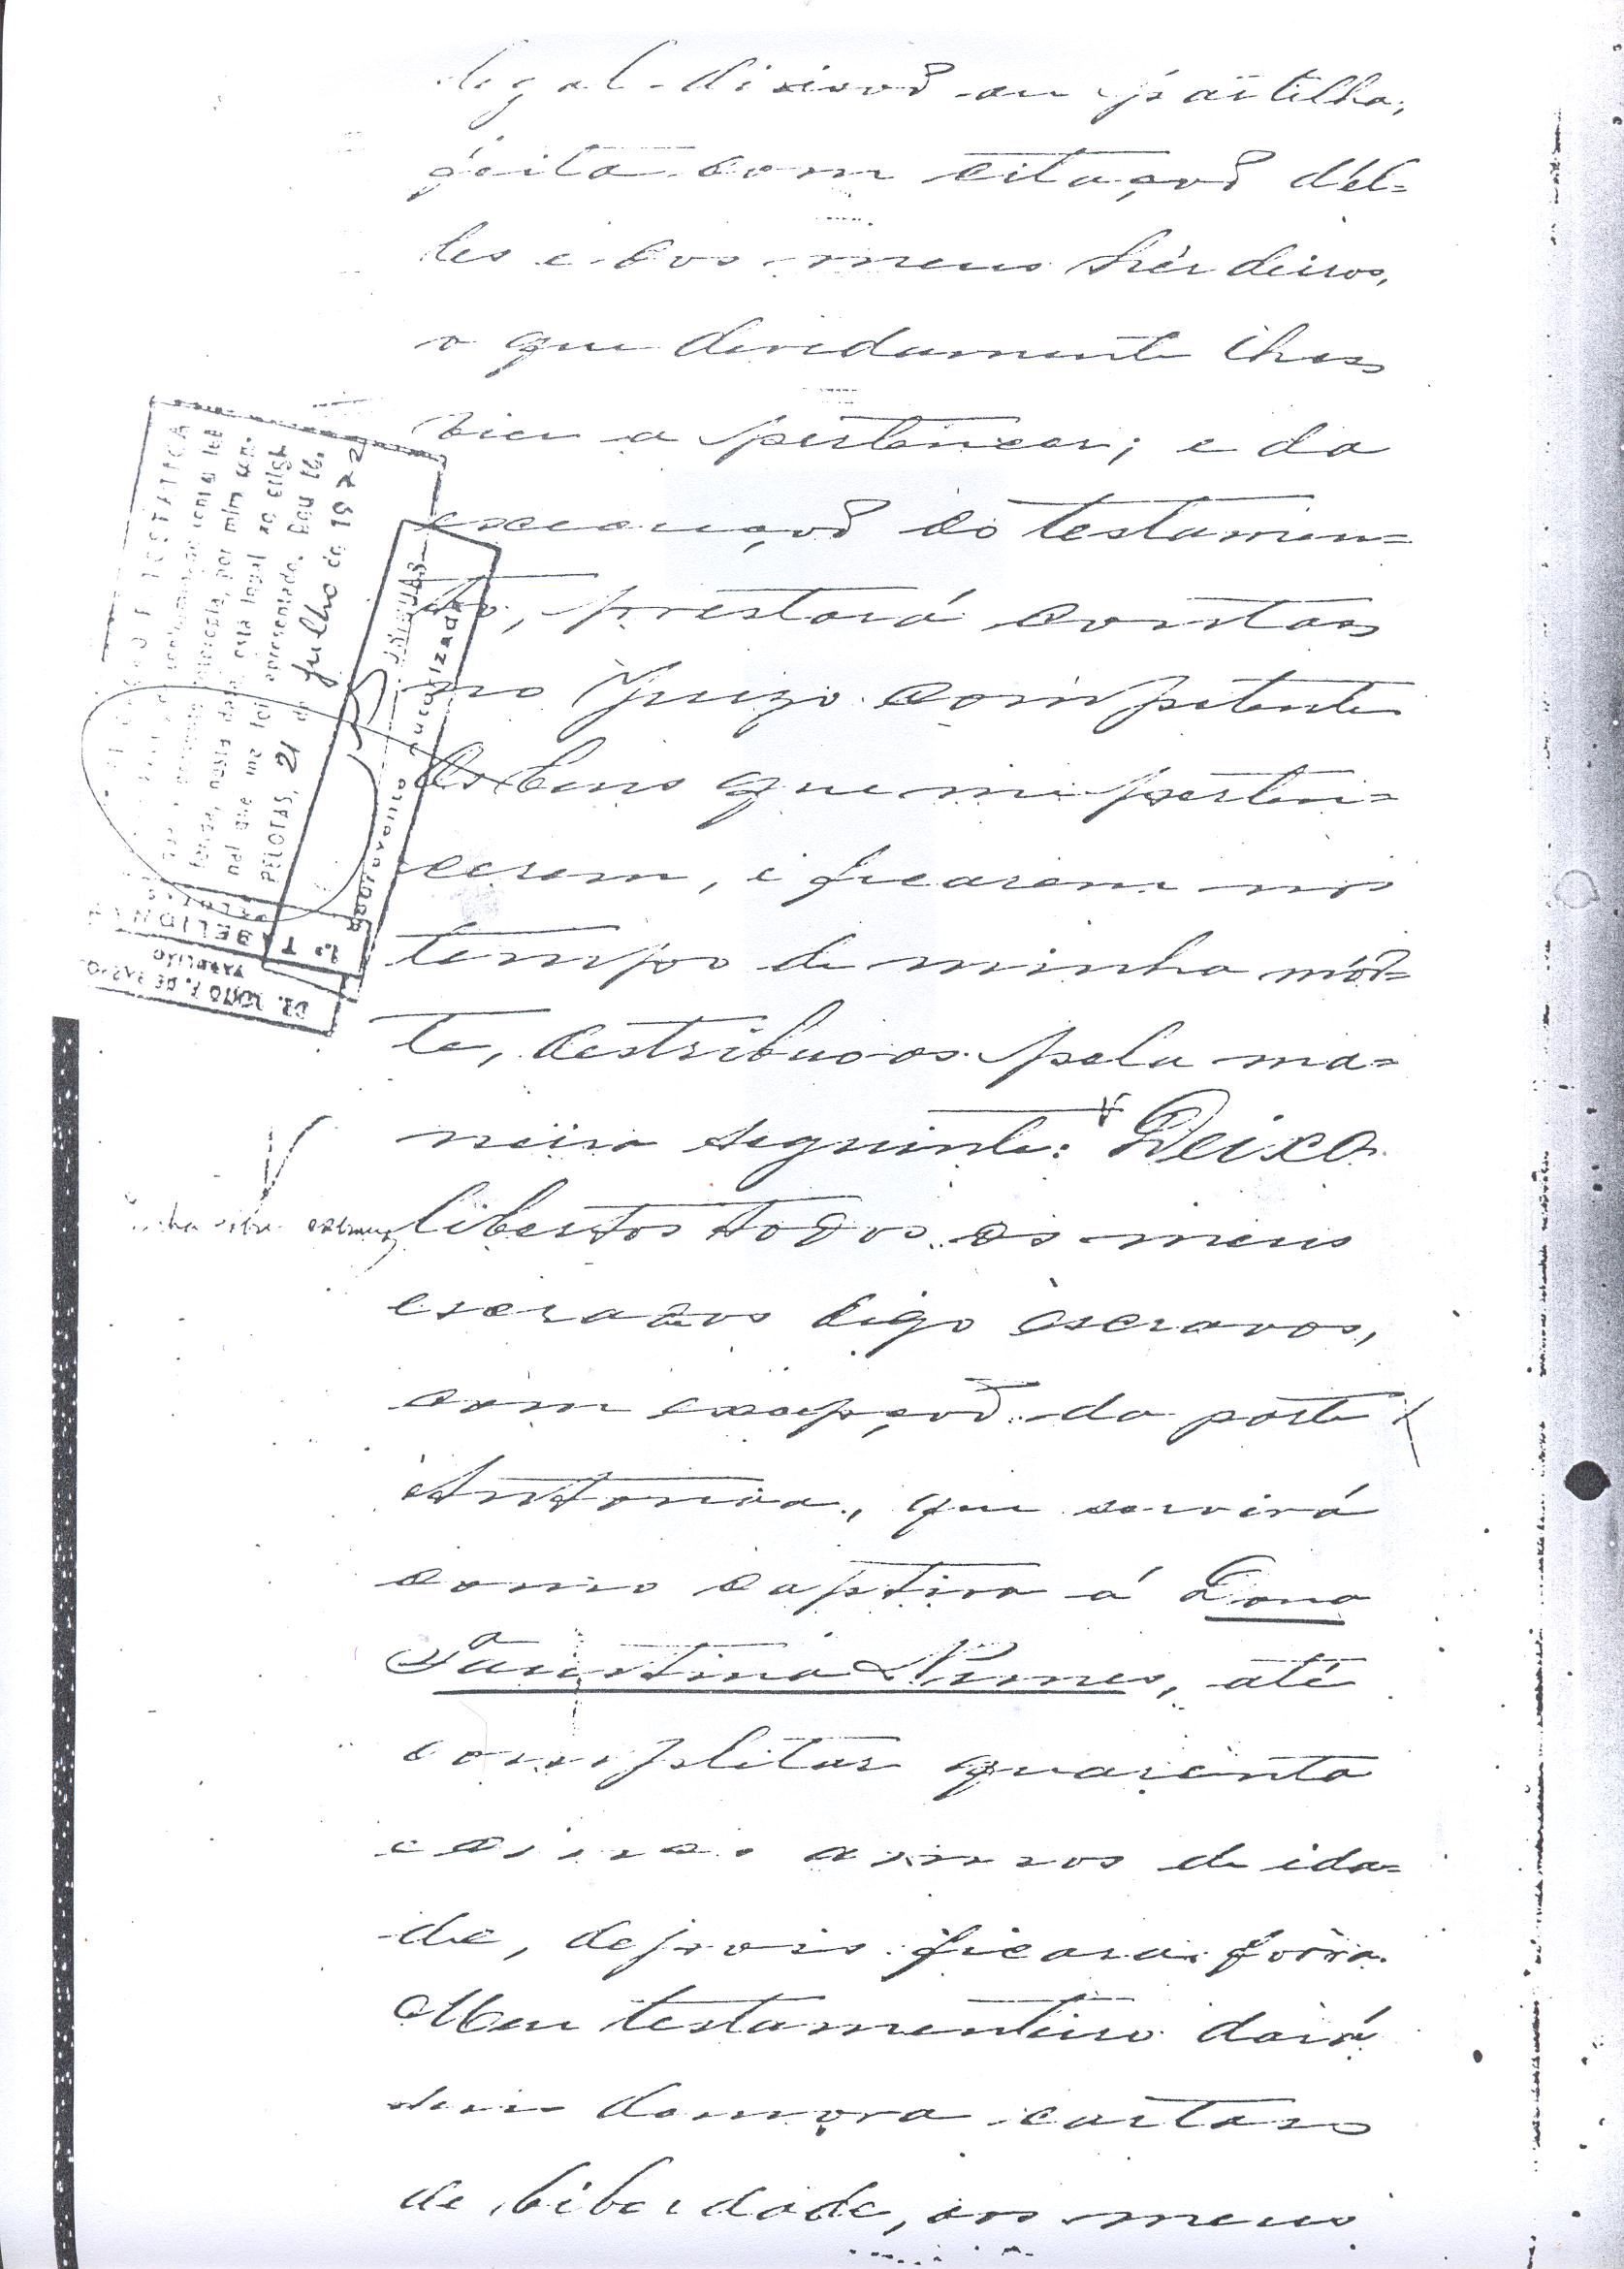 legal divisaõ ou partilha,
feita com citaçaõ d'el-
les e dos meus herdeiros,
o que devidamente lhes
vier a pertencer; e da
execuçaõ do testamen-
to, prestará contas
no Juizo competente
Os bens que me perten-
cerem, e ficarem no
tempo de minha mor-
te, destribuo os pela ma-
neira seguinte: Deixo
libertos todos os meus
escravos digo escravos,
com excepçaõ da parte
Antonia, que servirá
como captiva á Dona
Faustina Nunes, até
completar quarenta
annos de ida-
de, depois ficará forra.
Meu testamenteiro dará
sem demora cartas
de liberdade, aos meus
FOTOSTATICA
por mim con-
nesta data, esta legal ao origi-
nal que me foi apresentado. Dou fé.
PELOTAS, 21 de julho de 1972
autorizada
1.º TABELIONATO
PELOTAS
TABELIÃO